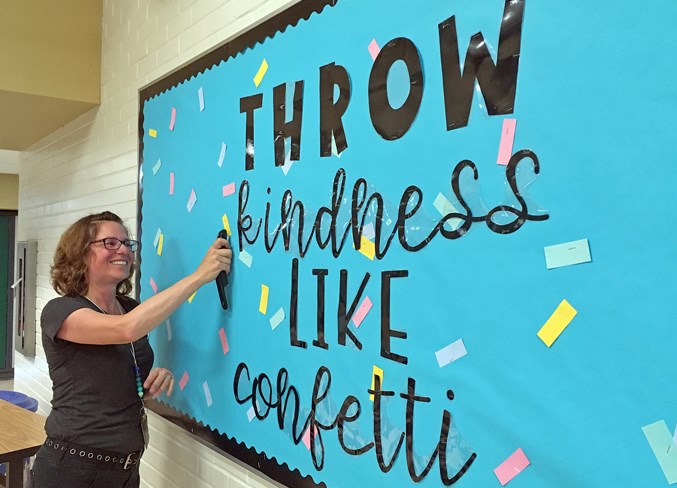 THROW
kindness
LIKE
confetti